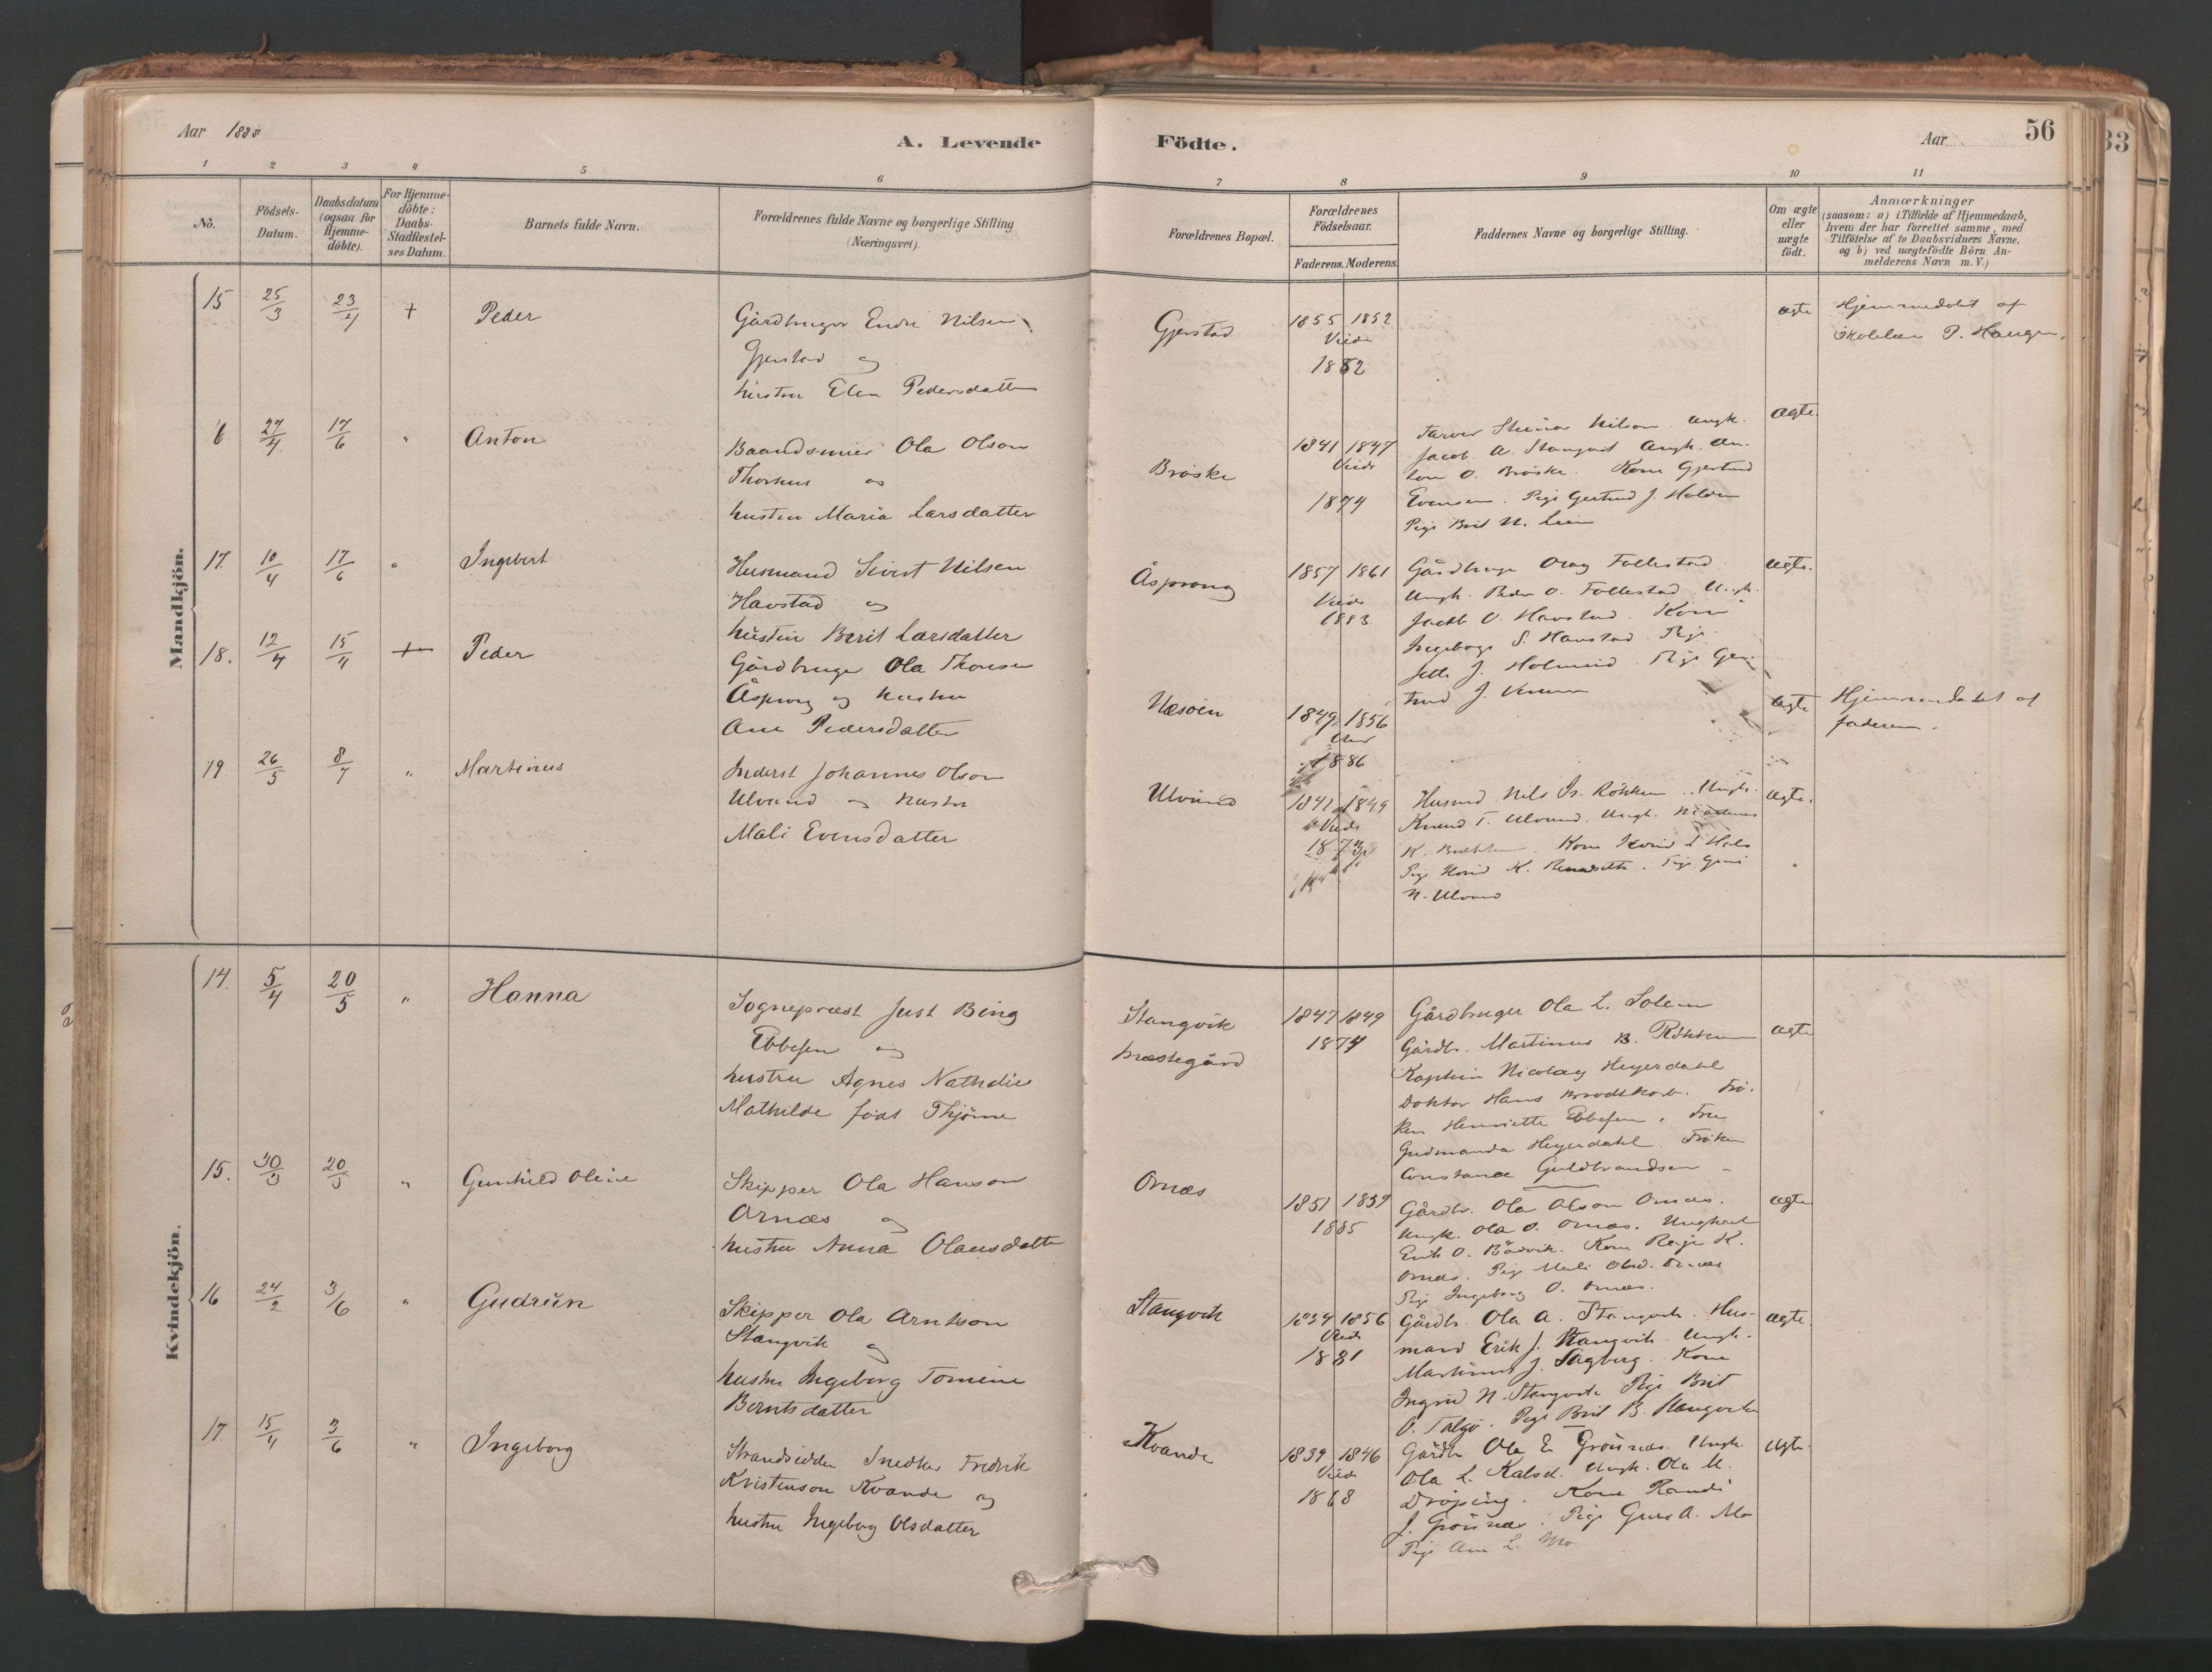 Aar 1888
A. Levende
Födte.
Aar
56
33
1 2 3 4 5 6 7 8 9 10 11
No.
Födsels-
Datum.
Daabsdatum
(ogsaa for
Hjemme-
döbte).
For Hjemme-
döbte:
Daabs-
Stadfæstel-
ses Datum.
Barnets fulde Navn.
Forældrenes fulde Navne og borgerlige Stilling
(Næringsvei).
Forældrenes Bopæl.
Forældrenes
Födselsaar.
Faderens. Moderens.
Faddernes Navne og borgerlige Stilling.
Om ægte
eller
uægte
födt.
Anmærkninger
(saasom: a) i Tilfælde af Hjemmedaab,
hvem der har forrettet samme, med
Tilföielse af to Daabsvidners Navne,
og b) ved uægtefödte Börn An-
melderens Navn m. V.)
Mandkjön.
15 25/3 23/4 + Peder
Gårdbruger Endre Nilsen
Gjerstad og
hustru Elen Pedersdatter
Gjerstad
1855 1852
Viede
1882
ægte
Hjemmedøbt af
P. Haugen.
6 27/4 17/6 " Anton
Baandsmier Ola Olson
Thorhus og
hustru Maria Larsdatter
Brøske
1841 1847
Viede
1874
Nilson. Ungk.
Jacob A. Stangvik Ungk. An-
ton O. Brøske. Kone Gjertrud
Evensen. Pige Gjertrud J. Halden
Pige Brit N. Lien
ægte.
17. 10/4 17/6 " Ingebert
Husmand Sivert Nilsen
Havstad og
hustru Berit Larsdatter
Åsprong
1857 1861
Viede
1883
Gårdbruger Follestad
Ungk. Peder O. Follestad Ungk.
Jacob O. Havstad. Kone
Ingeborg S. Havstad. Pige
J. Holmeid. Pige Gjer-
trud J.
ægte.
18. 12/4 15/4 + Peder
Gårdbruger Ola Thoresen
Åsprong og hustru
Ane Pedersdatter
Næsøien
1849 1856
1886
ægte
Hjemmedøbt af
faderen.
19. 26/5 8/7 " Martinus
Inderst Johannes Olson
Ulvund og hustru
Mali Evensdatter
Ulvund
1841 1849
Viede
1873
Husmd Nils Is. Røkkum. Ungk.
Knud T. Ulvund. Ungk.
K. Kone L Hals
Pige K. Pige
N. Ulvund
ægte.
Kvindekjön.
14. 5/4 20/5 " Hanna
Sognepræst Just Bing
Ebbesen og
hustru Agnes Nathalie
Mathilde født Thjøme
Stangvik
præstegård
1847 1849
1874
Gårdbruger Ola L. Solem
Gårdb. Martinus B. Røkkum
Kaptein Nicolay Heyerdahl
Doktor Hans Brodtkorb. Frø-
ken Henriette Ebbesen. Frue
Gudmanda Heyerdahl. Frøken
Constance Guldbrandsen
ægte
15. 30/3 20/5 " Gunhild Oline
Skipper Ola Hanson
Ornæs og
hustru Anna Olausdatter
Ornæs
1851 1859
1885
Gårdb. Ola Olson Ornæs.
Ungk. Ola O. Ornæs. Ungkarl
Erik O. Bøvik. Kone K.
Ornæs. Pige Mali Olsd. Ornæs
Pige Ingeborg O. Ornæs.
ægte
16 24/2 3/6 " Gudrun
Skipper Ola Arntson
Stangvik og
hustru Ingeborg Tomine
Berntsdatter
Stangvik
1834 1856
Viede
1881
Gårdb. Ola A. Stangvik. Hus-
mand Erik J. Stangvik. Ungk.
Martinus J. Sagberg. Kone
Ingrid N. Stangvik Pige Brit
O. Talgø. Pige Brit B. Stangvik
ægte.
17. 15/4 3/6 " Ingeborg
Strandsidder Snedker Fredrik
Kristenson Kvande og
hustru Ingeborg Olsdatter
Kvande
1839 1846
Viede
1868
Gårdb Ola E Grønnæs. Ungk.
Ola L. Ungk. Ola M.
Drøpping. Kone Randi
J. Grønnæs. Pige Guro A. Mo
Pige Ane L. Mo
ægte.